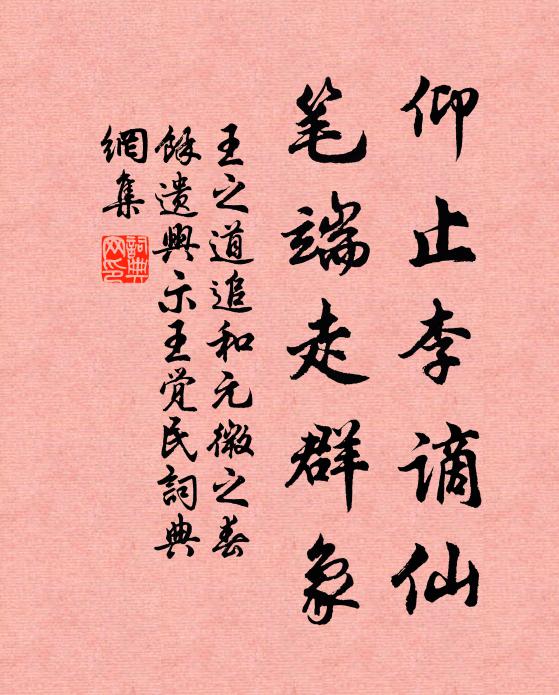 仰止李謫仙
笔端走群象
王之道追和元微之春
餘遗興示王觉民詞典
網集
詞典
网印